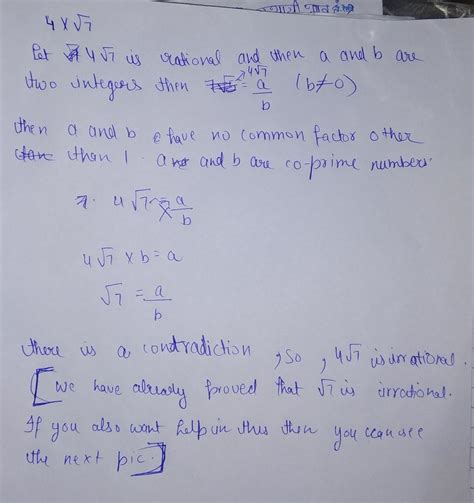 4 x √7
Let 4√7 is rational and then a and b are
two integers then 4√7 = a/b (b≠0)
then a and b have no common factor other
than 1. a and b are co-prime numbers.
4√7 = a/b
4√7 x b = a
√7 = a/b
there is a contradiction, So, 4√7 is irrational.
[We have already proved that √7 is irrational.
If you also want help in this then you can see
the next pic.]